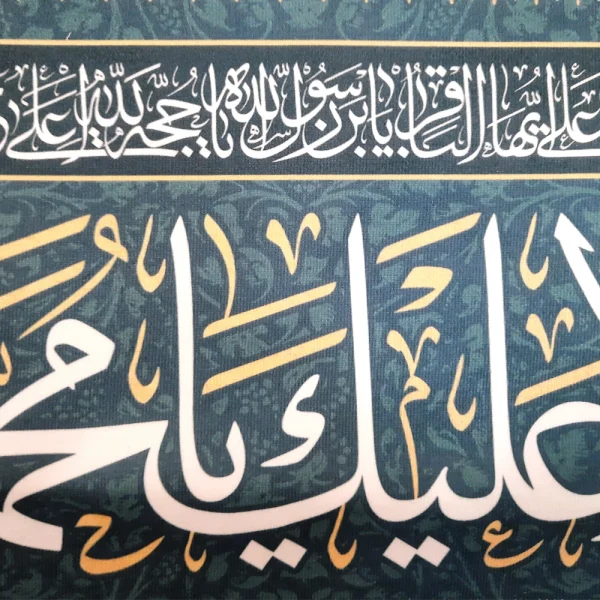 علی ایها الباقر یابن رسول الله یا حجة الله علی
علیك یا محمـ